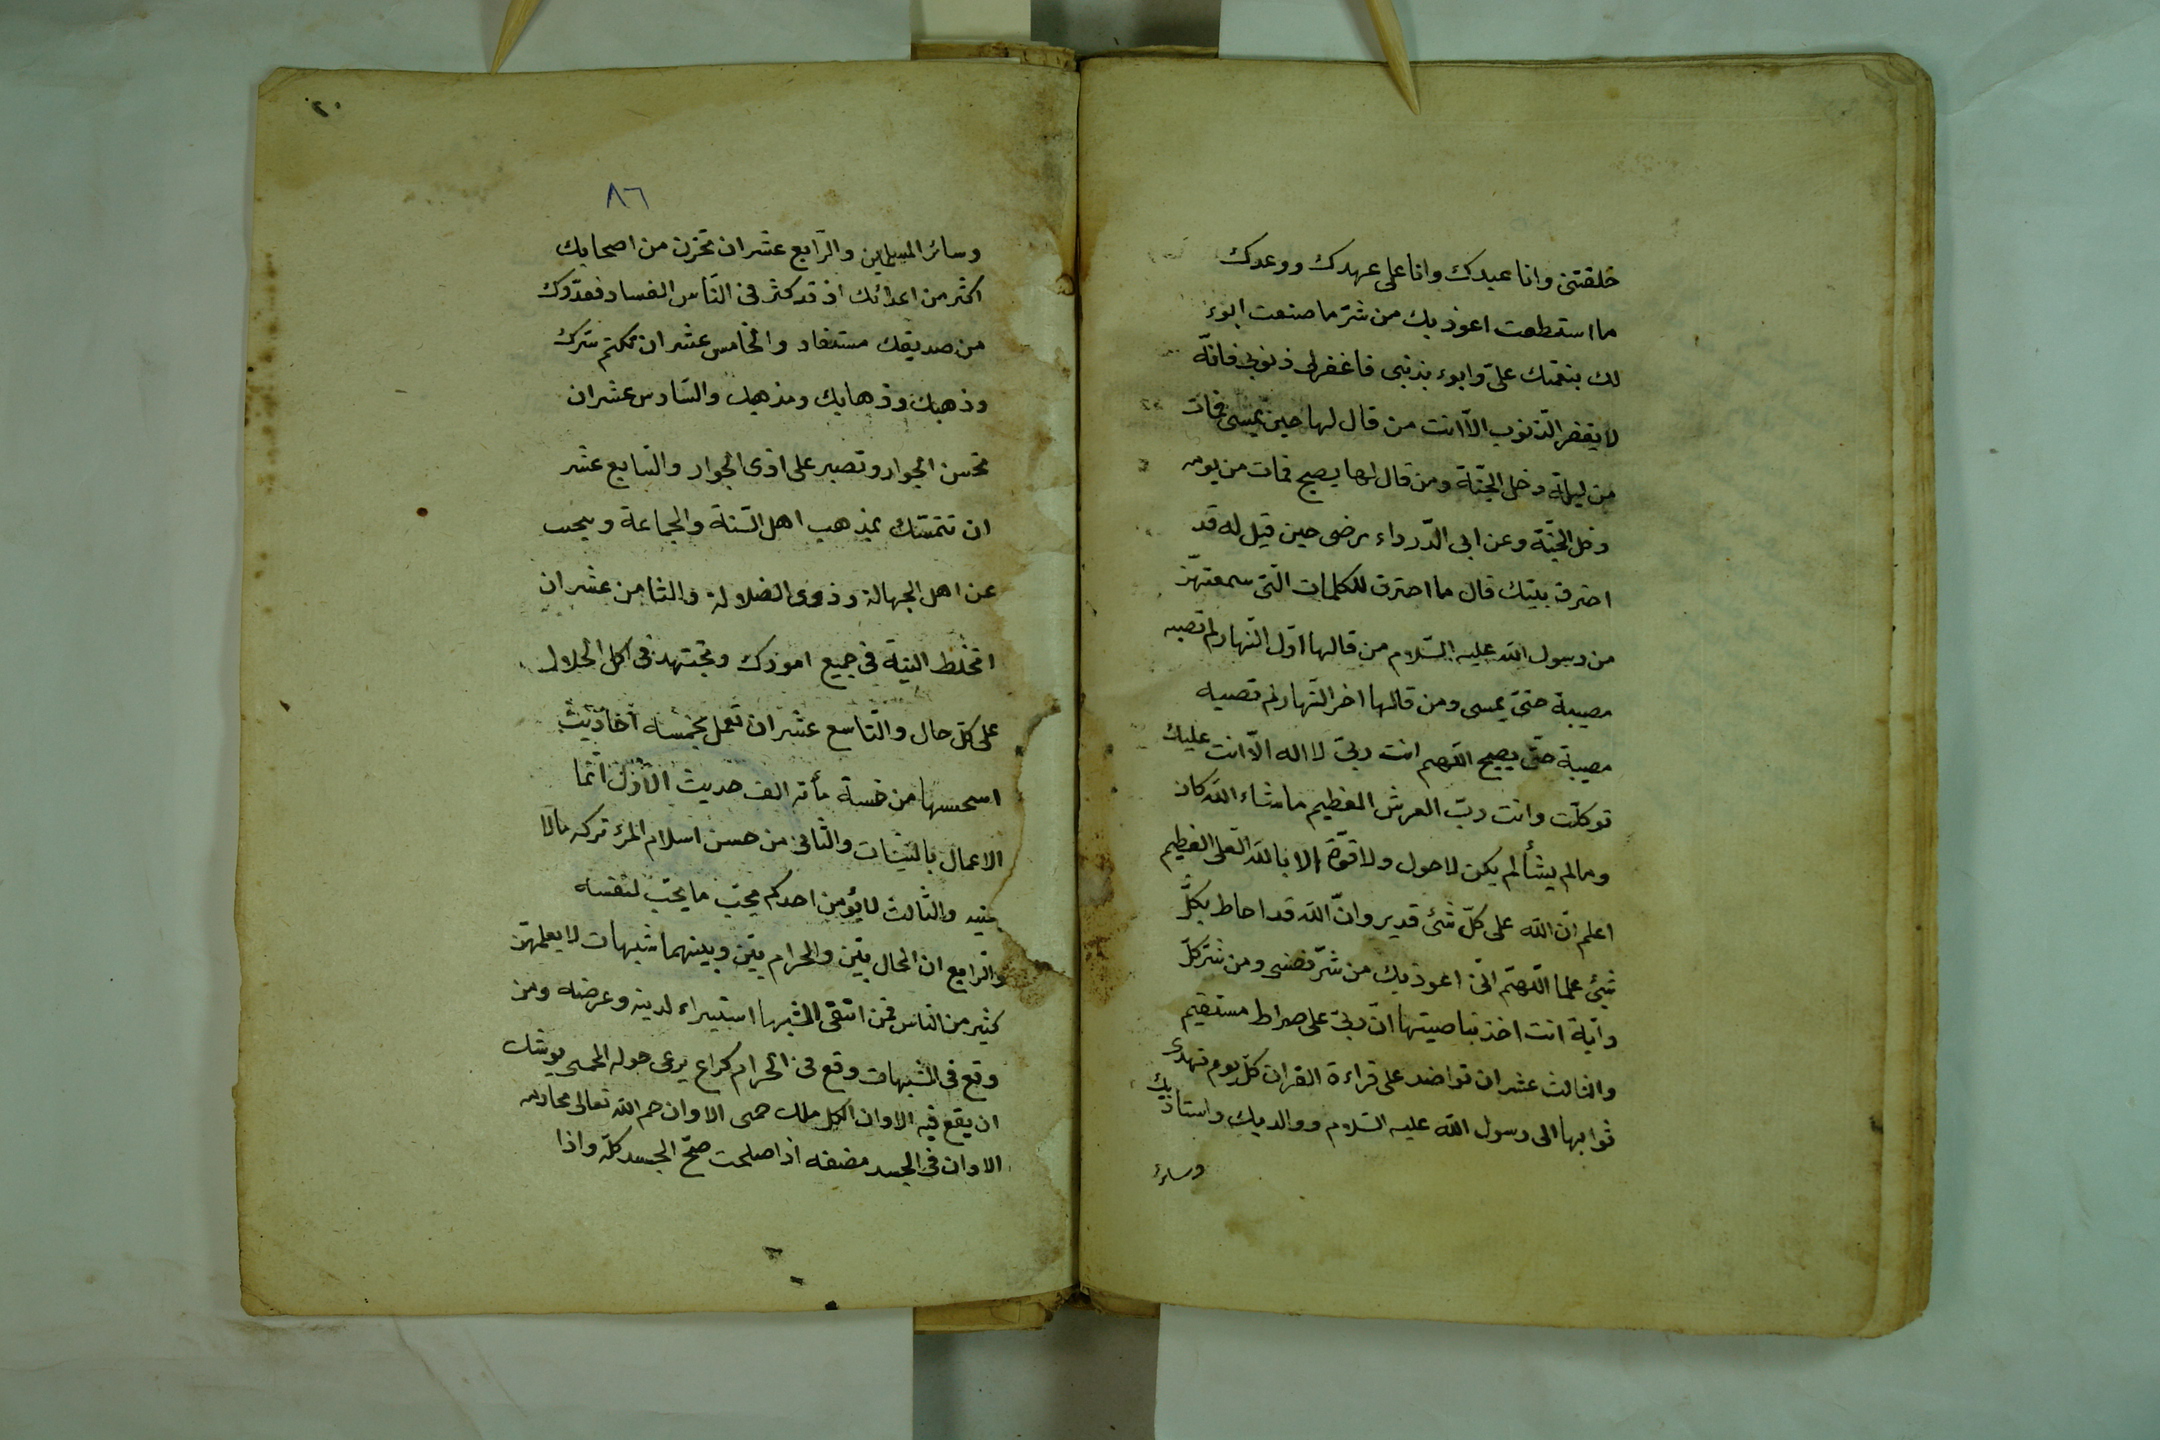 خلقتنى وانا عبدك وانا على عهدك ووعدك
ما استطعت اعوذ بك من شرّ ما صنعت ابوء
لك بنعمتك علىّ وابوء بذنبى فاغفر لى ذنوبى فانّه
لا يغفر الذّنوب الاّ انت من قال لها حين يمسى فمات
من ليلته دخل الجنّة ومن قال لها يصبح فمات من يومه
دخل الجنّة وعن ابى الدّرداء رضى حين قيل له قد
احترق بيتك قال ما احترق للكلمات الّتى سمعتهنّ
من رسول الله عليه السّلام من قالها اوّل النّهار لم تصبه
مصيبة حتىّ يمسى ومن قالها اخر النّهار لم تصبيه
مصيبة حتىّ يصبح اللّهم انت ربىّ لا اله الاّ انت عليك
توكلّت وانت ربّ العرش العظيم ما شاء الله كان
وما لم يشأ لم يكن لا حول ولا قوّة الا بالله العلى العظيم
اعلم انّ الله على كلّ شئ قدير وانّ الله قد احاط بكلّ
شئ علما اللّهمّ انّى اعوذ بك من شرّ نفسى ومن شرّ كلّ
دآبّة انت اخذ بناصيتها انّ ربىّ على صراط مستقيم
والثالث عشر ان تواضد على قراءة القران كلّ يوم تهدى
ثوابها الى رسول الله عليه السّلام ووالديك واستاذيك
وسائر
٢٠
٨٦
وسائر المسلمين والرّابع عشر ان تحزن من اصحابك
اكثر من اعدائك اذ قد كثر فى النّاس الفساد فعدّوك
من صديقك مستفاد والخامس عشر ان تكتم سّرك
وذهبك وذهابك ومذهبك والسّادس عشر ان
تحسن الجوار وتصبر على اذى الجوار والسّابع عشر
ان تتمسّك بمذهب اهل السّنة والجماعة و
عن اهل الجهالة وذوى الضلالة والثامن عشر ان
النية فى جميع امورك وتجتهد فى اكل الحلال
على كلّ حال والتّاسع عشر ان تعمل بخمسة احاديث
من خمسة مأته الف حديث الاوّل انّما
الاعمال بالنيّات والثّانى من حسن اسلام المرء تركه مالا
يعنيه والثّالث لا يؤمن احدكم يحبّ ما يحبّ لنفسه
والرّابع ان الحلال بيّن والحرام بيّن وبينهما شبهات لا يعلمهنّ
كثير من الناس فمن اتّقى الشبها استبراء لدينه وعرضه ومن
وقع فى الشبهات وقع فى الحرام كراع يرعى حوله الحمى يوشك
ان يقع فيه الاوان لكل ملك حمى الاوان حم الله تعالى محارمه
الاوان فى الجسد مضغه اذا صلحت صلّح الجسد كلّه واذا